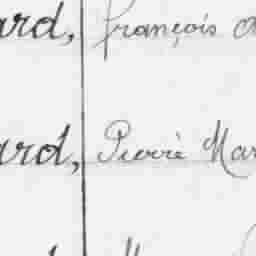 ard, françois
ard, Pierre Mar